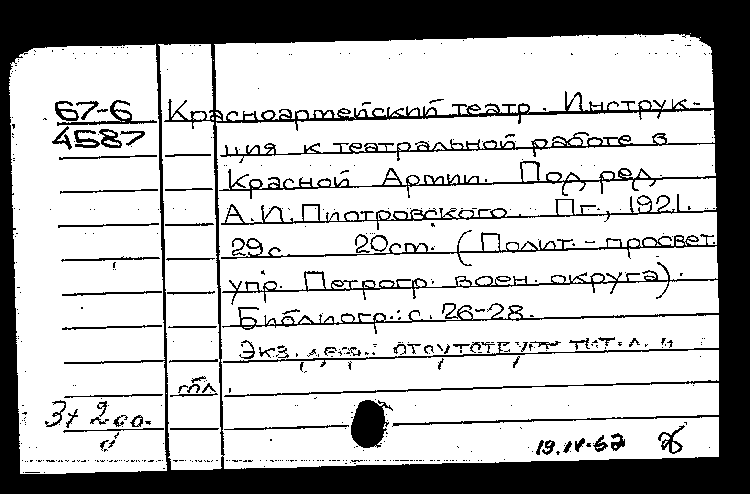 67-6 Красноармейский театр. Инструк-
4587 ция к театральной работе в
Красной Армии. Под ред.
А.И.Пиотровского. Пг., 1921.
29с. 20см. (Полит.-просвет.
упр. Петрогр. воен. округа).
Библиогр.: с. 26-28.
Экз. деф.: отсутствует тит.л. и
обл.
19.IV-67